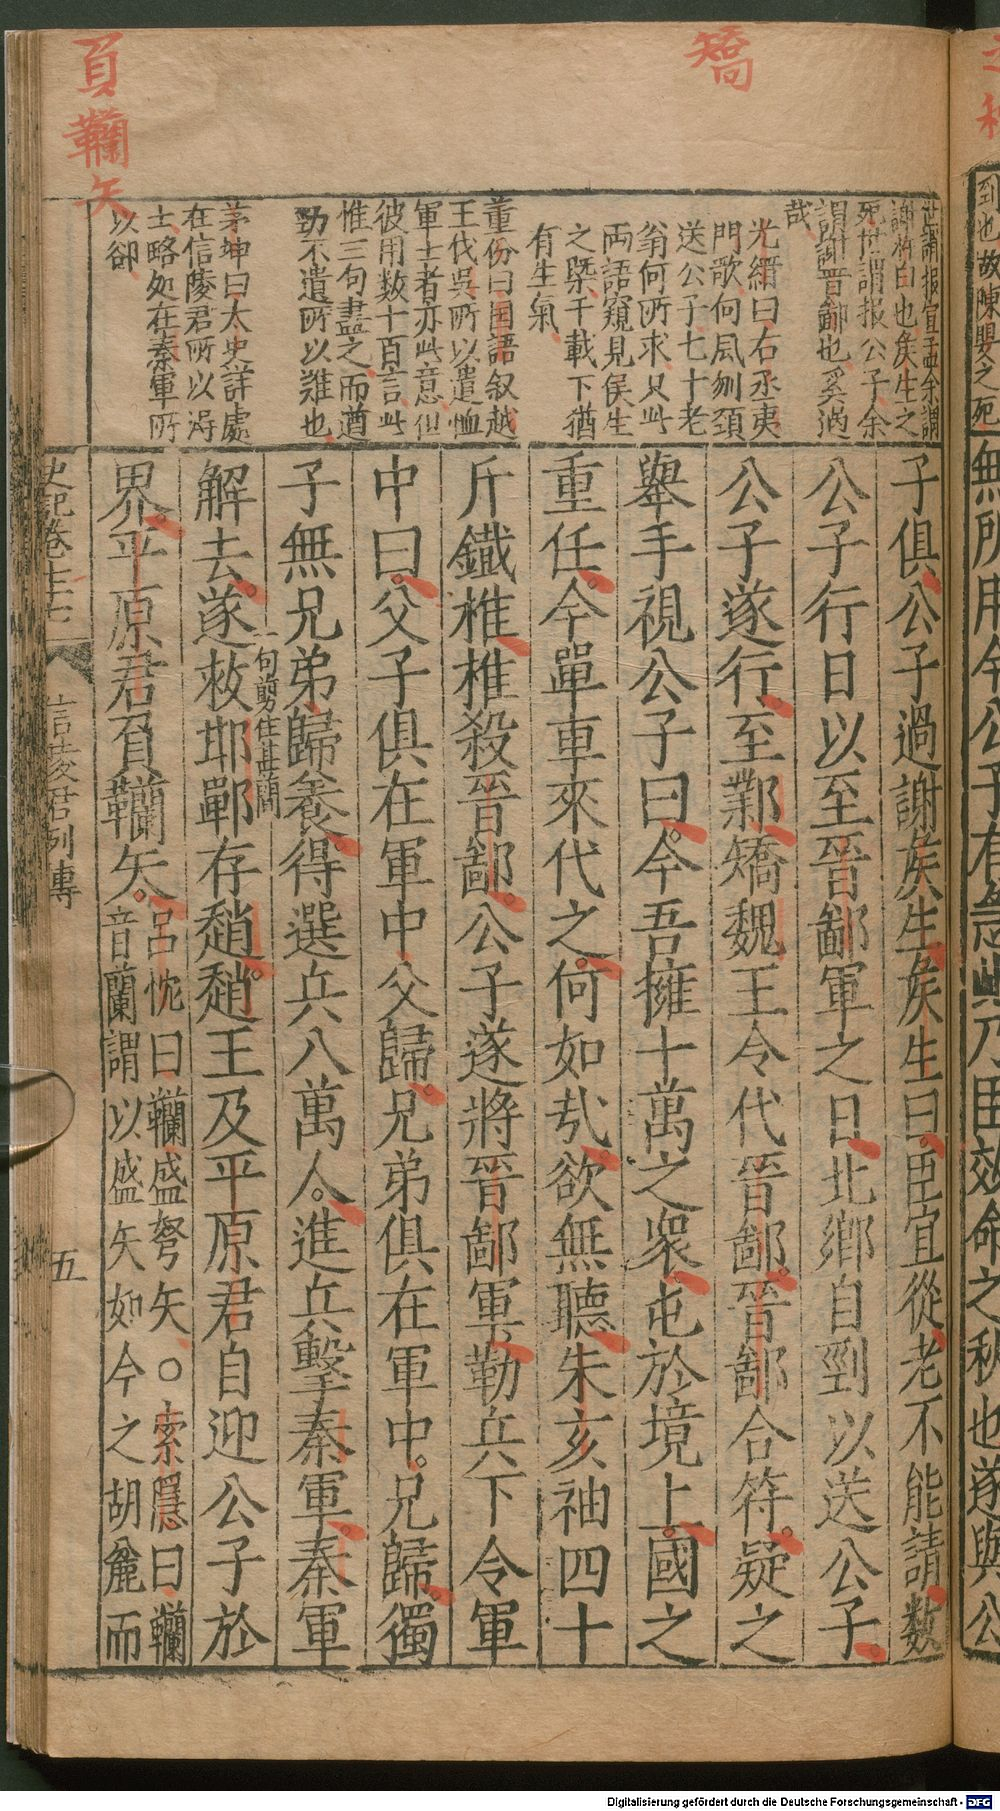 矯
負韊矢
世謂報宜孟余謂
謝亦白也矦生之
死世謂報公子余
謂謝晉鄙也奚過
哉
光縉曰右丞夷
門歌向風刎頸
送公子七十老
翁何所求只此
両語窺見侯生
之槩千載下猶
有生氣
董份曰国語叙越
王伐吳所以遣恤
軍士者亦此意但
彼用数十百言此
惟三句盡之而酋
勁不遺所以難也
茅坤曰太史詳處
在信陵君所以得
士略処在秦軍所
以卻
子俱公子過謝矦生矦生曰臣宜從老不能請数
公子行日以至晉鄙軍之日北鄉自剄以送公子
公子遂行至鄴矯魏王令代晉鄙晉鄙合符疑之
舉手視公子曰今吾擁十萬之衆屯於境上國之
重任今單車來代之何如㢤欲無聽朱亥袖四十
斤鐵椎椎殺晉鄙公子遂將晉鄙軍勒兵下令軍
中曰父子俱在軍中父歸兄弟俱在軍中兄歸獨
子無兄弟歸養得選兵八萬人進兵擊秦軍秦軍
一句剪住甚簡
解去遂救邯鄲存趙趙王及平原君自迎公子於
界平原君負韊矢
呂忱曰韊盛弩矢○索隱曰韊
音蘭謂以盛矢如今之胡簏而
史記卷七十七 信陵君列傳 五
到也故陳嬰之死
無所用今公子有急此乃臣效命之秋也遂與公
Digitalisierung gefördert durch die Deutsche Forschungsgemeinschaft - DFG